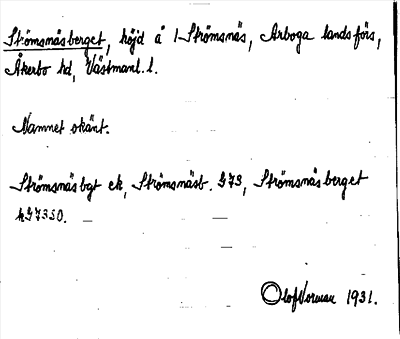 Strömsnäsberget, höjd å 1 Strömsnäs, Arboga landsförs,
Åkerbo hd, Västmanl. l.
Namnet okänt.
Strömsnäsbgt ek, Strömsnäsb. G73, Strömsnäsberget
hG73SO.
Olof Vorman 1931.